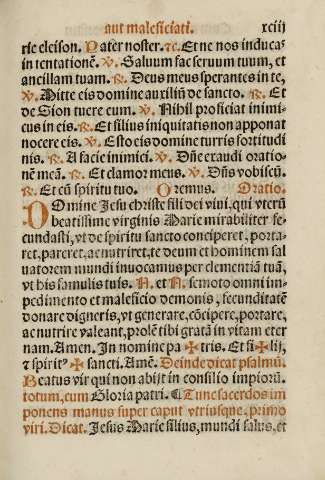 aut maleficiati. xciij
rie eleison. Pater noster. ⁊c. Et ne nos inducas
in tentationē. ℣. Saluum fac seruum tuum, et
ancillam tuam. ℟. Deus meus sperantes in te,
℣. Mitte eis domine auxiliū de sancto. ℟. Et
de Sion tuere eum. ℣. Nihil proficiat inimi-
cus in eis. ℟. Et filius iniquitatis non apponat
nocere eis. ℣. Esto eis domine turris fortitudi
nis. ℟. A facie inimici. ℣. Dñe exaudi oratio-
nē meā. ℟. Et clamor meus. ℣. Dñs vobiscū.
℟. Et cū spiritu tuo. Oremus. Oratio.
DOmine Jesu christe fili dei viui, qui vterū
beatissime virginis Marie mirabiliter fe-
cundasti, vt de spiritu sancto conciperet, porta-
ret, pareret, ac nutriret, te deum et hominem sal
uatorem mundi inuocamus per clementiā tuā,
vt his famulis tuis. N. et. N. semoto omni im-
pedimento et maleficio demonis, fecunditatē
donare digneris, vt generare, cōcipere, portare,
ac nutrire valeant, prolē tibi gratā in vitam eter
nam. Amen. In nomine pa✠tris. Et fi✠lij,
⁊ spirit⁹ ✠ sancti. Amē. Deinde dicat psalmū.
Beatus vir qui non abijt in consilio impiorū.
totum, cum Gloria patri. ¶ Tunc sacerdos im
ponens manus super caput vtriusque, primo
viri. Dicat. Jesus Marie filius, mundi salus, et